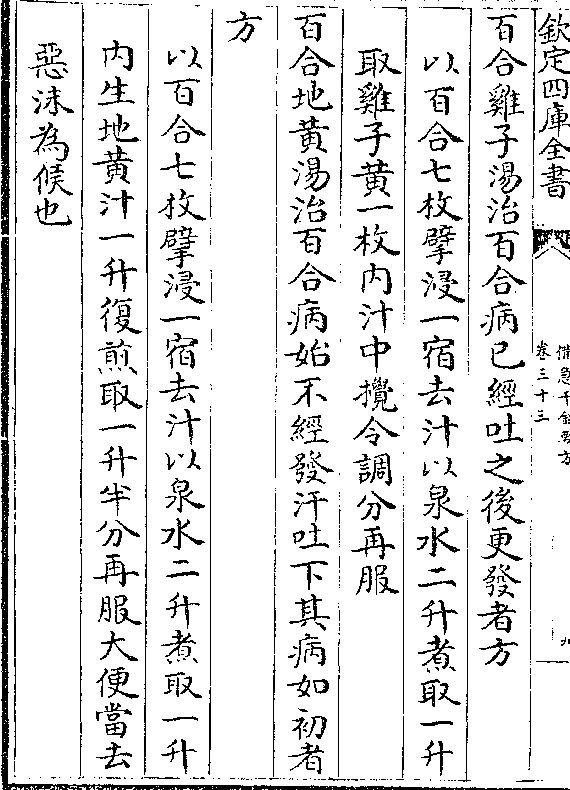 欽定四庫全書
備急千金要方
卷三十三
九
百合雞子湯治百合病已經吐之後更發者方
以百合七枚擘浸一宿去汁以泉水二升煮取一升
取雞子黃一枚内汁中攪令調分再服
百合地黃湯治百合病始不經發汗吐下其病如初者
方
以百合七枚擘浸一宿去汁以泉水二升煮取一升
内生地黃汁一升復煎取一升半分再服大便當去
惡沫為候也